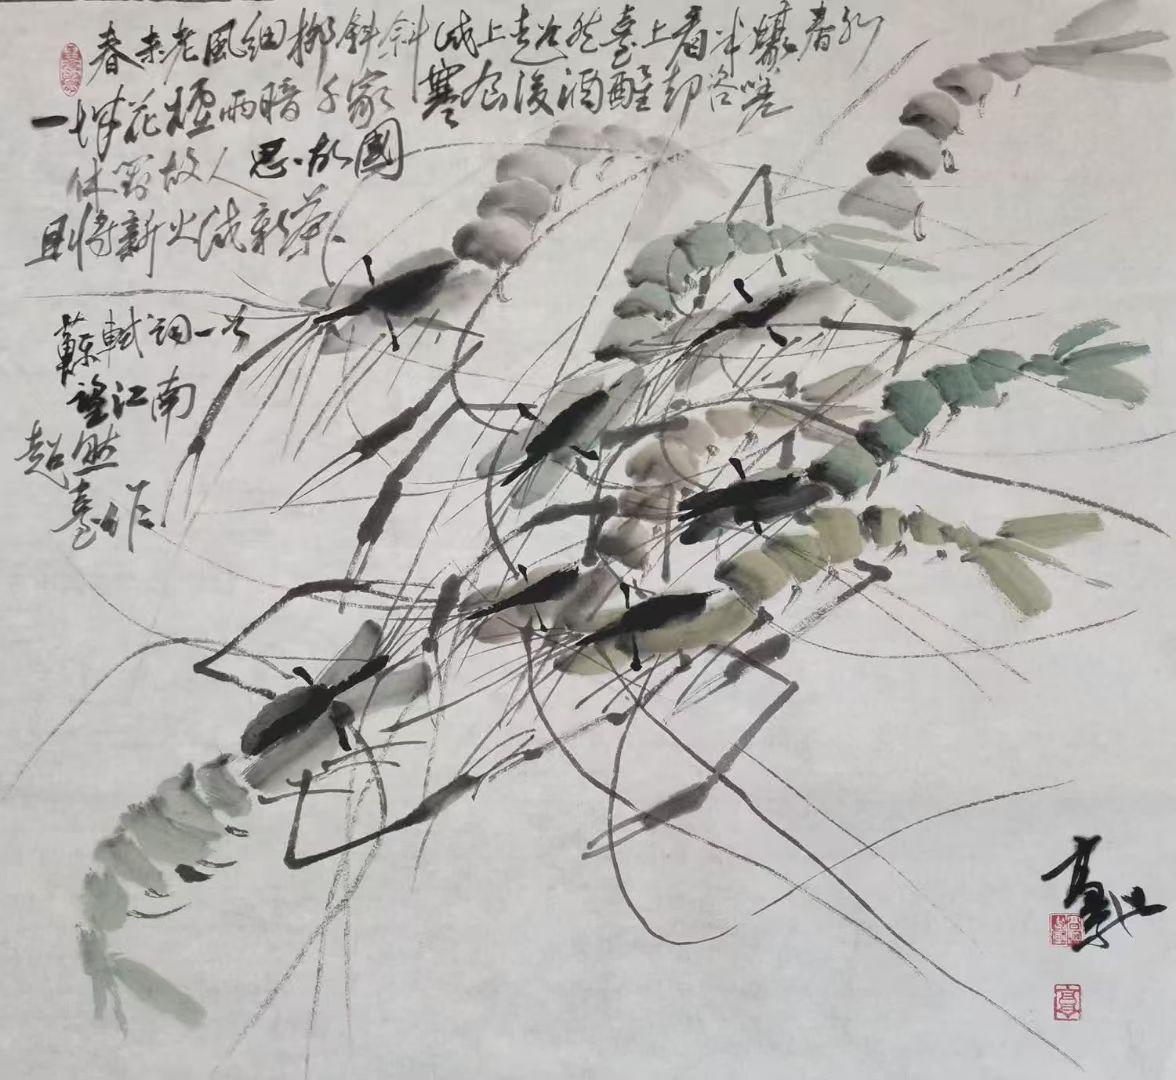 春未老風細柳斜斜試上超然臺上看半壕春水
一城花煙雨暗千家寒食後酒醒却咨嗟
休對故人思故國
且將新火試新茶
蘇軾詞一首
望江南
超然
臺作